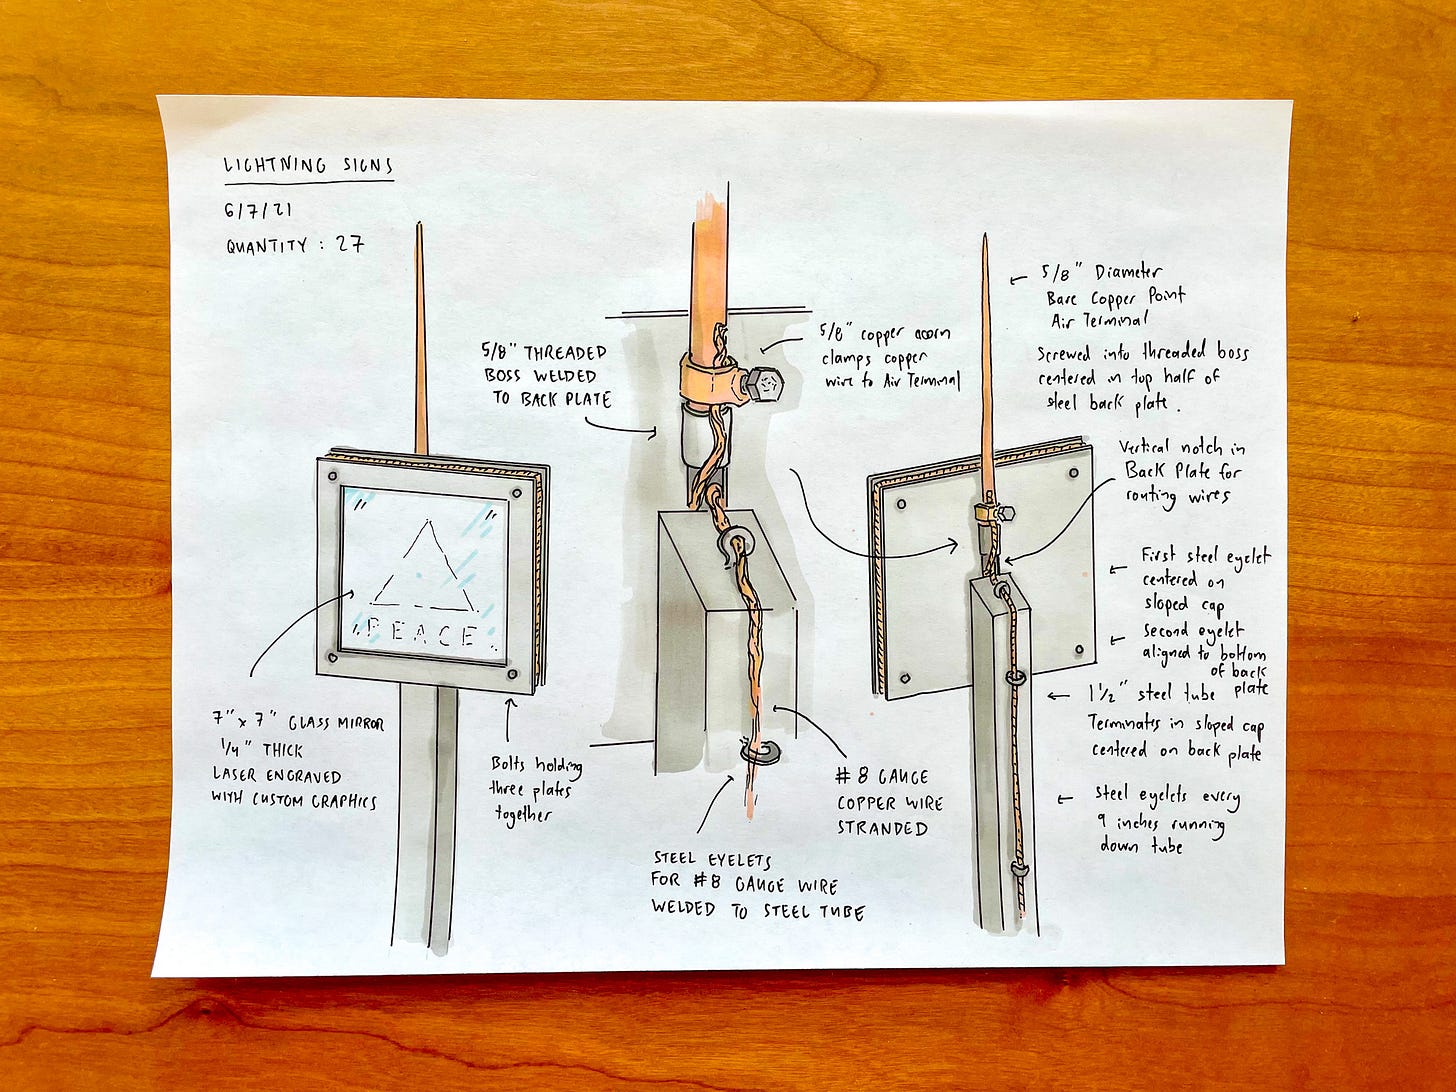 LIGHTNING SIGNS
6/7/21
QUANTITY : 27
5/8" THREADED
BOSS WELDED
TO BACK PLATE
5/8" copper acorn
clamps copper
wire to Air Terminal
5/8" Diameter
Bare Copper Point
Air Terminal
Screwed into threaded boss
centered in top half of
steel back plate.
Vertical notch in
Back Plate for
routing wires
First steel eyelet
centered on
sloped cap
Second eyelet
aligned to bottom
of back
plate
1 1/2" steel tube
Terminates in sloped cap
centered on back plate
steel eyelets every
9 inches running
down tube
PEACE
7" x 7" GLASS MIRROR
1/4" THICK
LASER ENGRAVED
WITH CUSTOM GRAPHICS
Bolts holding
three plates
together
# 8 GAUGE
COPPER WIRE
STRANDED
STEEL EYELETS
FOR #8 GAUGE WIRE
WELDED TO STEEL TUBE